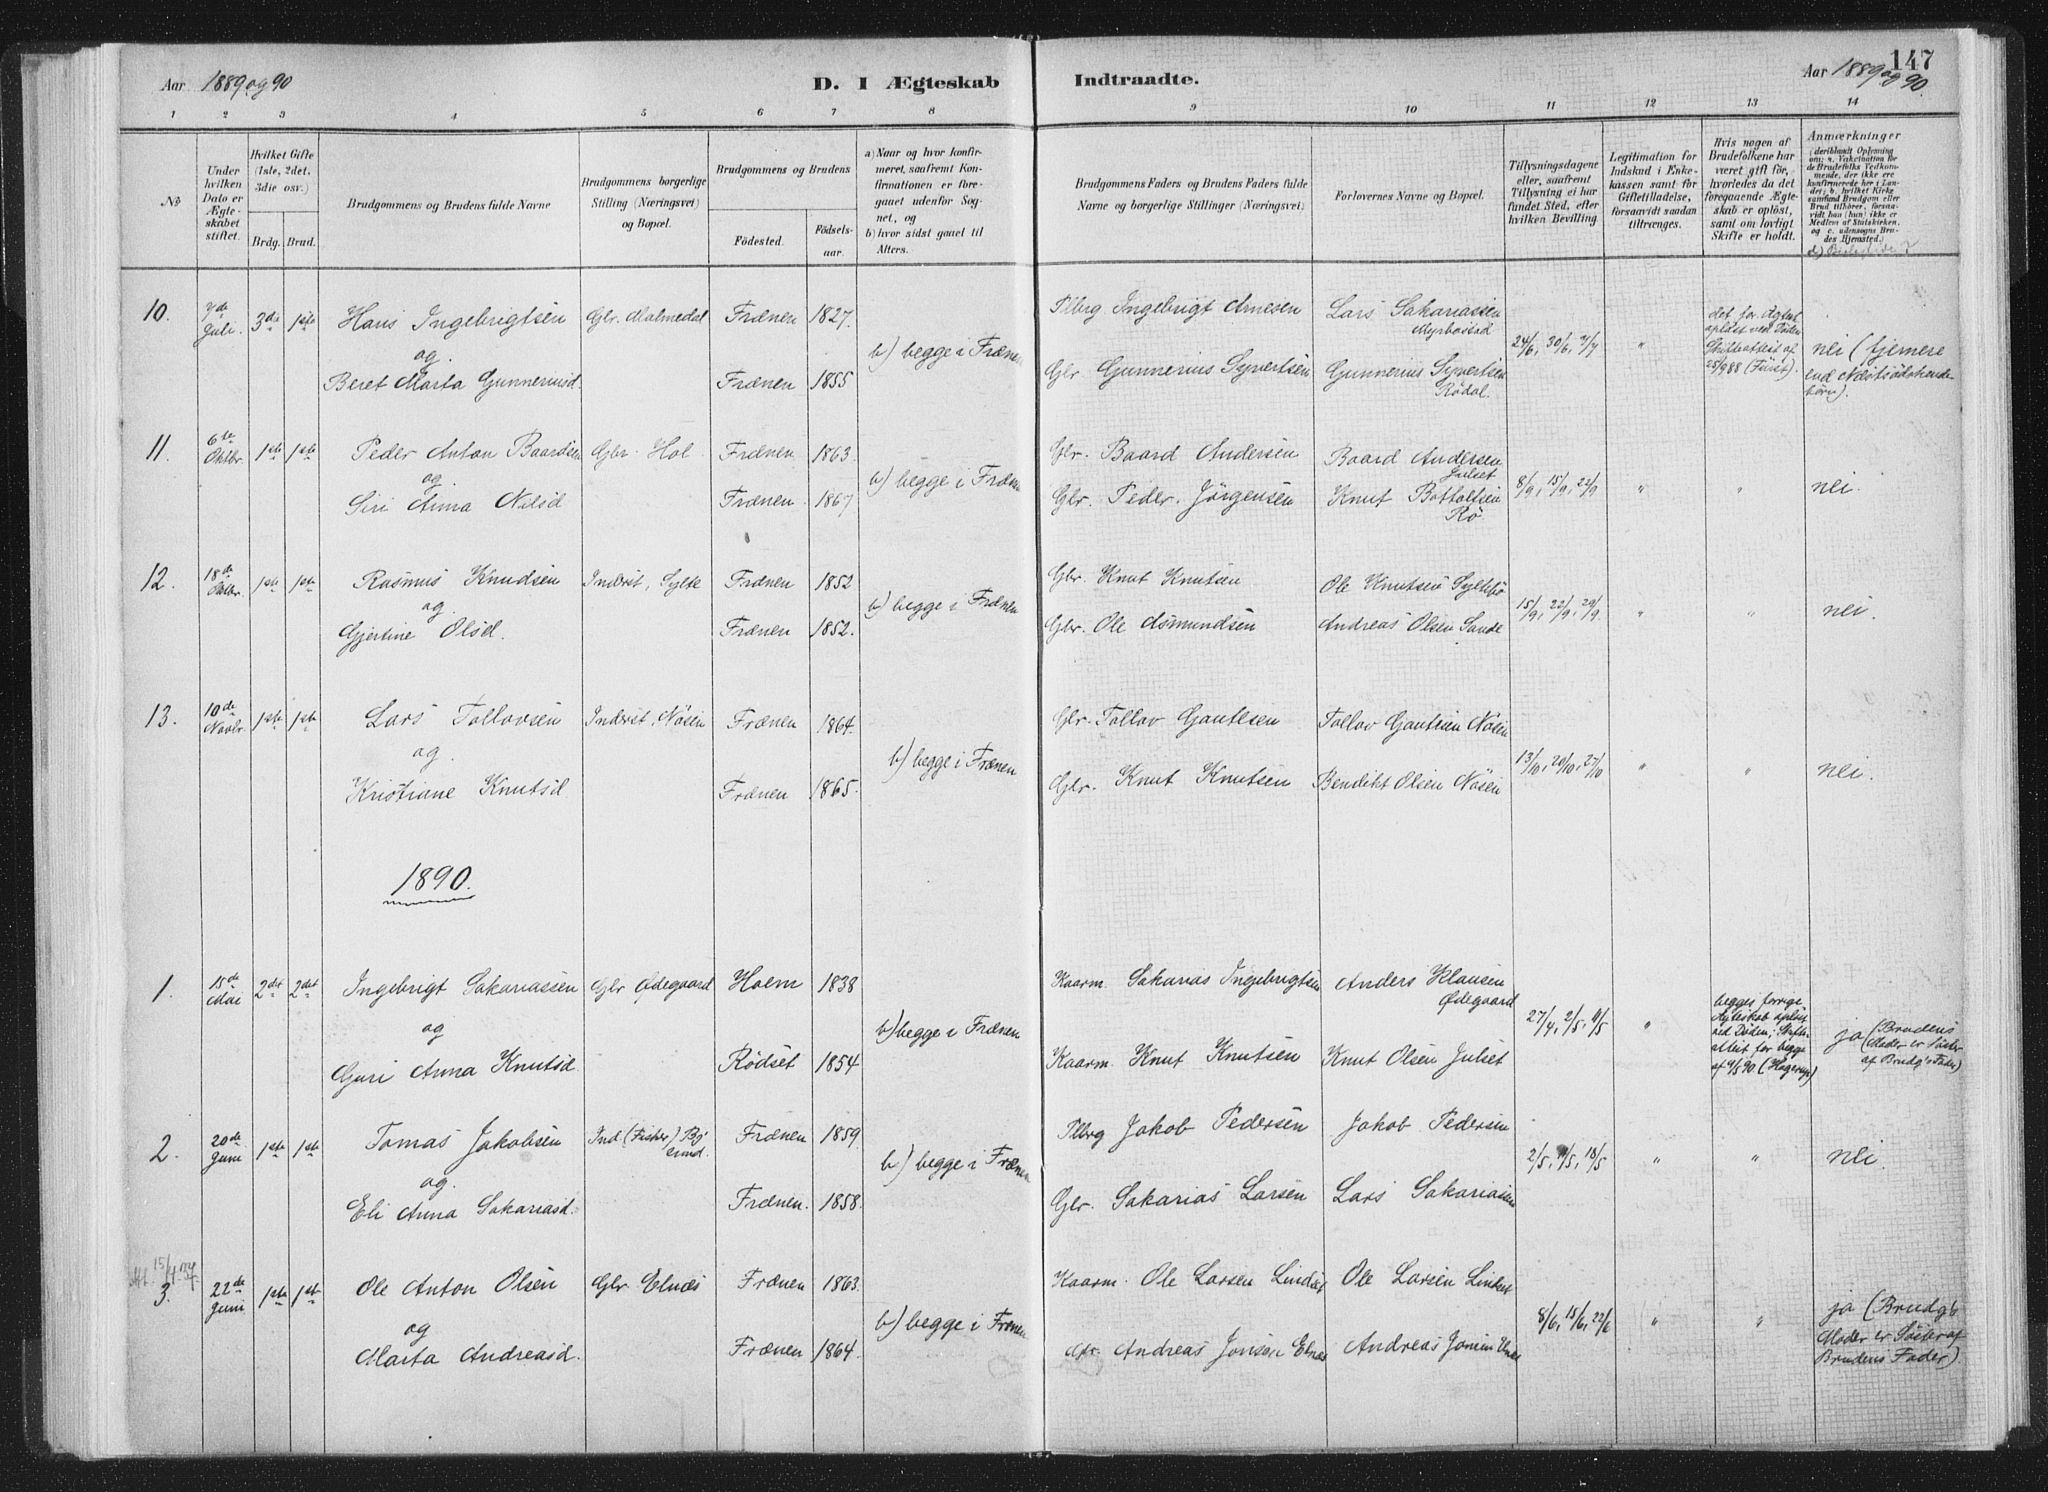 Aar 1889 og 90
D. I Ægteskab Indtraadte.
147
Aar 1889 og 90.
1 2 3 4 5 6 7 8 9 10 11 12 13 14
No
Under hvilken Dato er Ægteskabet stiftet.
Hvilket Gifte (1ste, 2det, 3die osv.)
Brdg. Brud.
Brudgommens og Brudens fulde Navne
Brudgommens borgerlige Stilling (Næringsvei) og Bopæl.
Brudgommens og Brudens
Fødested. Fødselsaar.
a) Naar og hvor konfirmeret, saafremt Konfirmationen er foregaaet udenfor Sognet, og
b) hvor sidst gaaet til Alters.
Brudgommens Faders og Brudens Faders fulde Navne og borgerlige Stillinger (Næringsvei)
Forlovernes Navne og Bopæl.
Tillysningsdagene eller, saafremt Tillysning ei har fundet Sted, efter hvilken Bevilling.
Legitimation for Indskud i Enkekassen samt for Giftetilladelse, forsaavidt saadan tiltrænges.
Hvis nogen af Brudefolkene har været gift før, hvorledes da det foregaaende Ægteskab er opløst, samt om lovligt Skifte er holdt.
Anmærkninger
(deriblandt Oplysning om: a. Vakcination for de Brudefolks Vedkommende, der ikke ere konfirmerede her i Landet; b. hvilket Kirkesamfund Brudgom eller Brud tilhører, forsaavidt han (hun) ikke er Medlem af Statskirken, og c. udensogns Brudes Hjemsted.)
10. 7de Juli. 3die 1ste Hans Ingebrigtsen Gbr. Malmedal Frænen 1827. Plbrg Ingebrigt Arnesen Lars Sakariassen Myrbostad
og b) begge i Frænen 24/6, 30/6, 7/7 " det for. Ægtesk. opløst ved Døden. Skifteattest af 25/9 88 (Fürst). nei (fjernere end Næstsødskendebørn).
Beret Marta Gunneriusd. Frænen 1855 Gbr. Gunnerius Syvertsen Gunnerius Syvertsen Rødal.
11. 6te Oktbr. 1ste 1ste Peder Anton Baardsen Gbr. Hol Frænen 1863. Gbr. Baard Andersen Baard Andersen Julset
og b) begge i Frænen 8/9, 15/9, 22/9 " " nei.
Siri Anna Nilsd Frænen 1867 Gbr. Peder Jörgensen Knut Bottolfsen Rø
12. 18de Oktbr. 1ste 1ste Rasmus Knudsen Inderst, Sylte Frænen 1852 Gbr. Knut Knutsen Ole Knutsen Syltebø
og b) begge i Frænen 15/9, 22/9, 29/9. " " nei.
Gjertine Olsd. Frænen 1852. Gbr. Ole Asmundsen Andreas Olsen Sande
13. 10de Novbr. 1ste 1ste Lars Tollovsen Inderst, Nøsen Frænen 1864. Gbr. Tollov Gautesen Tollov Gautesen Nøsen
og b) begge i Frænen 13/10, 20/10, 27/10 " " nei.
Kristiane Knutsd Frænen 1865. Gbr. Knut Knutsen Bendikt Olsen Nøsen
1890.
1. 15de Mai 2det 2det Ingebrigt Sakariassen Gbr Ødegaard Holm 1838 Kaarm. Sakarias Ingebrigtsen Anders Klausen Ødegaard
og b) begge i Frænen 27/4, 2/5, 11/5 " begges forrige Ægteskab opløst ved Døden; Skifteattest for begge af 9/5 90 (Hagerup) ja (Brudens Moder er Søster af Brudg's Fader)
Guri Anna Knutsd Rødset 1854 Kaarm. Knut Knutsen Knut Olsen Julset
2. 20de Juni 1ste 1ste Tomas Jakobsen Ind. (Fisker) Bjsund. Frænen 1859. Plbrg Jakob Pedersen Jakob Pedersen
og b) begge i Frænen 2/5, 11/5, 18/5 " " nei.
Eli Anna Sakariasd. Frænen. 1858. Gbr. Sakarias Larsen Lars Sakariassen
Att. 15/4 1937.
3. 22de Juni 1ste 1ste Ole Anton Olsen Gbr Elnæs Frænen 1863. Kaarm. Ole Larsen Lindset Ole Larsen Linset
og b) begge i Frænen 8/6, 15/6, 22/6 " " ja (Brudg's Moder er Søster af Brudens Fader)
Marta Andreasd. Frænen 1864. Gbr. Andreas Jonsen Elnæs Andreas Jonsen Elnæs